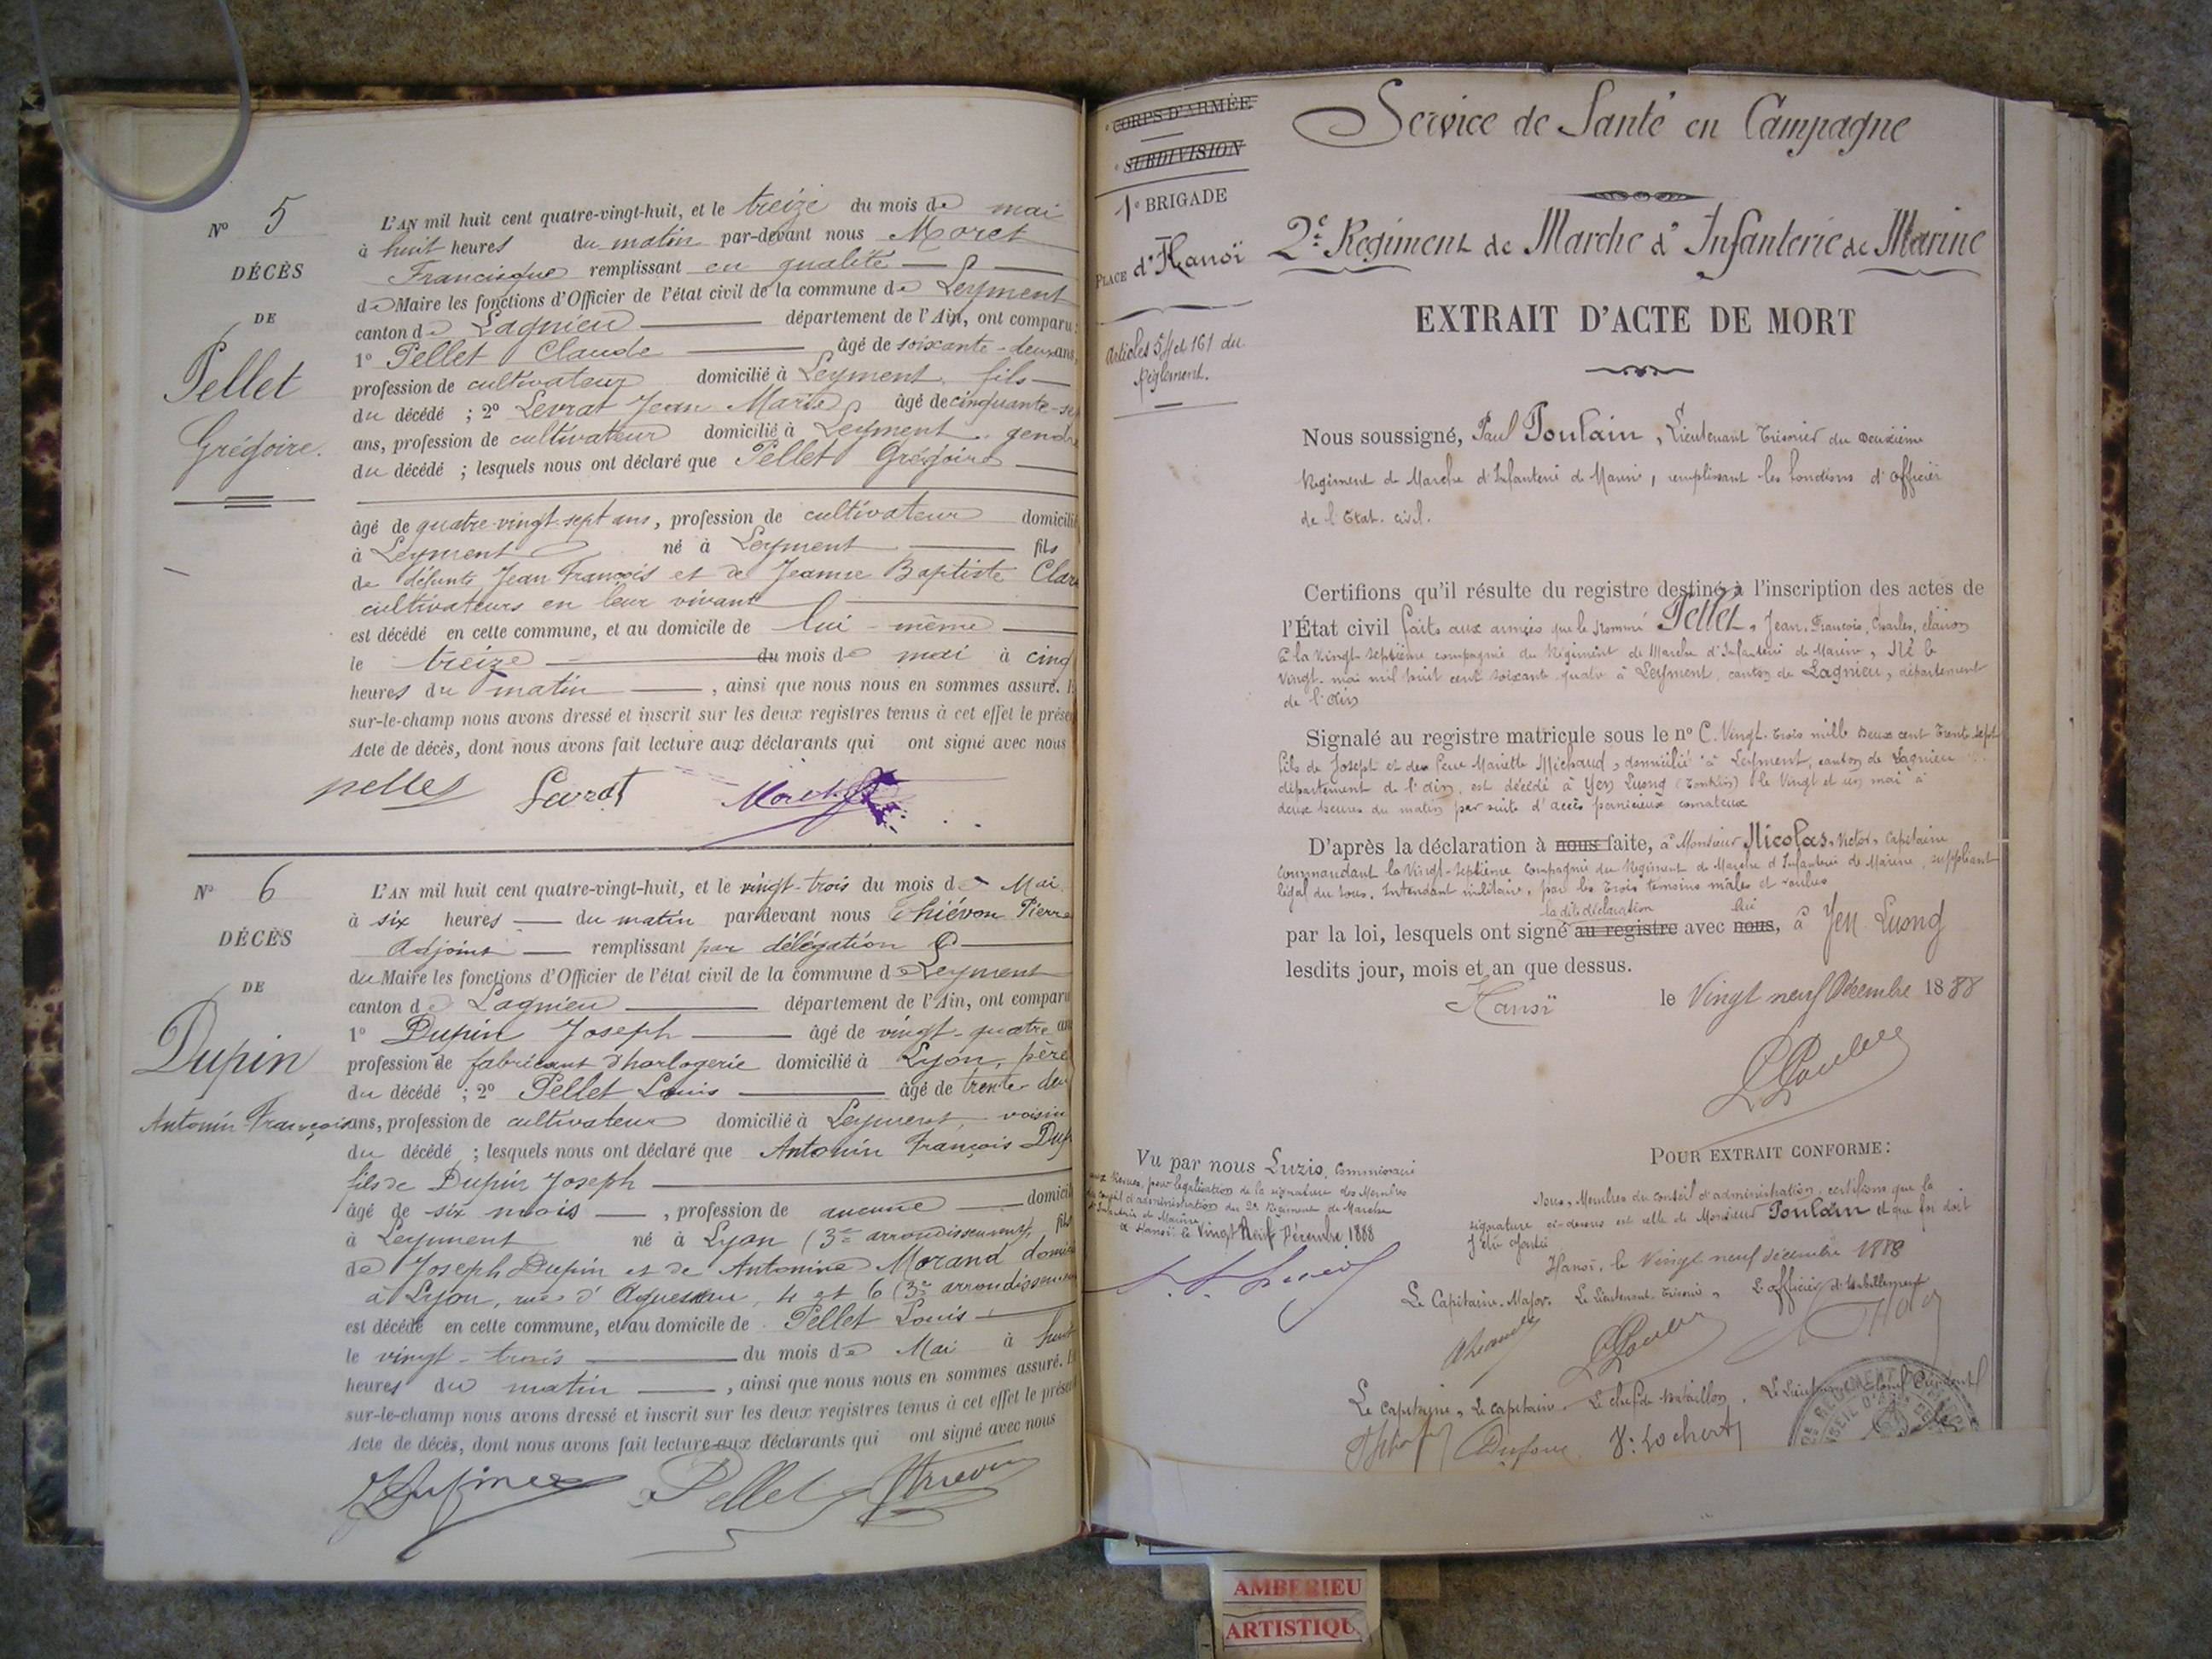 N° 5
DÉCÈS
DE
Pellet
Grégoire.
L'AN mil huit cent quatre-vingt-huit, et le treize du mois de mai
à huit heures du matin par-devant nous Moret
Francisque remplissant en qualité
de Maire les fonctions d'Officier de l'état civil de la commune de Leyment
canton de Lagnieu département de l'Ain, ont comparu :
1° Pellet Claude âgé de soixante-deux ans,
profession de cultivateur domicilié à Leyment, fils
du décédé ; 2° Levrat Jean Marie âgé de cinquante-se
ans, profession de cultivateur domicilié à Leyment, gendre
du décédé ; lesquels nous ont déclaré que Pellet Grégoire
âgé de quatre-vingt-sept ans, profession de cultivateur domicilié
à Leyment né à Leyment fils
de défunts Jean François et de Jeanne Baptiste
cultivateurs en leur vivant
est décédé en cette commune, et au domicile de lui-même
le treize du mois de mai à cinq
heures du matin , ainsi que nous nous en sommes assuré.
sur-le-champ nous avons dressé et inscrit sur les deux registres tenus à cet effet le prése
Acte de décès, dont nous avons fait lecture aux déclarants qui ont signé avec nous
pellet Levrat Moret
N° 6
DÉCÈS
DE
Dupin
Antonin François
L'AN mil huit cent quatre-vingt-huit, et le vingt-trois du mois de Mai
à six heures du matin par devant nous Thiévon Pierre
Adjoint remplissant par délégation
du Maire les fonctions d'Officier de l'état civil de la commune de Leyment
canton de Lagnieu département de l'Ain, ont comparu
1° Dupin Joseph âgé de vingt-quatre an
profession de fabricant d'horlogerie domicilié à Lyon, père
du décédé ; 2° Pellet Louis âgé de trente deu
ans, profession de cultivateur domicilié à Leyment, voisin
du décédé ; lesquels nous ont déclaré que Antonin François Dup
fils de Dupin Joseph
âgé de six mois , profession de aucune domicil
à Leyment né à Lyon (3me arrondissement), fils
de Joseph Dupin et de Antonine Morand domici
à Lyon, rue d'Aguesseau, 4 et 6 (3me arrondissemen
est décédé en cette commune, et au domicile de Pellet Louis
le vingt-trois du mois de Mai à huit
heures du matin , ainsi que nous nous en sommes assuré.
sur-le-champ nous avons dressé et inscrit sur les deux registres tenus à cet effet le prése
Acte de décès, dont nous avons fait lecture aux déclarants qui ont signé avec nous
Pellet
CORPS D'ARMÉE.
SUBDIVISION
1e BRIGADE
PLACE d'Hanoï
Articles 54 et 161 du
Règlement.
Service de Santé en Campagne
2e Régiment de Marche d'Infanterie de Marine
EXTRAIT D'ACTE DE MORT
Nous soussigné, Paul Poulain, Lieutenant Trésorier du Deuxième
Régiment de Marche d'Infanterie de Marine, remplissant les fonctions d'officier
de l'Etat-civil.
Certifions qu'il résulte du registre destiné à l'inscription des actes de
l'État civil faits aux armées que le nommé Pellet, Jean, François, Charles, clairon
à la Vingt-septième compagnie du Régiment de Marche d'Infanterie de Marine, Né le
Vingt mai mil huit cent soixante quatre à Leyment, canton de Lagnieu, département
de l'Ain
Signalé au registre matricule sous le n° C. Vingt-trois mille deux cent trente-sept
fils de Joseph et de feue Mariette Michaud, domicilié à Leyment, canton de Lagnieu
département de l'Ain, est décédé à Yen Luong (Tonkin) le vingt et un mai à
deux heures du matin par suite d'accès pernicieux comateux
D'après la déclaration à nous faite, à Monsieur Nicolas, Victor, Capitaine
commandant la Vingt-septième compagnie du Régiment de Marche d'Infanterie de Marine, suppléant
légal du Sous-Intendant militaire, par les trois témoins mâles et voulus
la dite déclaration lui
par la loi, lesquels ont signé au registre avec nous, à Yen Luong
lesdits jour, mois et an que dessus.
Hanoï le Vingt neuf Décembre 1888
Vu par nous Luzio, Commissaire
aux Revues, pour légalisation de la signature des Membres
du Conseil d'administration du 2e Régiment de Marche
d'Infanterie de Marine
à Hanoï le Vingt Neuf Décembre 1888
POUR EXTRAIT CONFORME :
Nous, Membres du Conseil d'administration, certifions que la
signature ci-dessus est celle de Monsieur Poulain et que foi doit
y être ajoutée
Hanoï, le Vingt neuf décembre 1888
Le Capitaine-Major, Le Lieutenant-Trésorier, L'officier d'habillement
Le Capitaine, Le Capitaine, Le chef de Bataillon, Le Lieutenant-Colonel Président
Dufour
AMBERIEU
ARTISTIQU